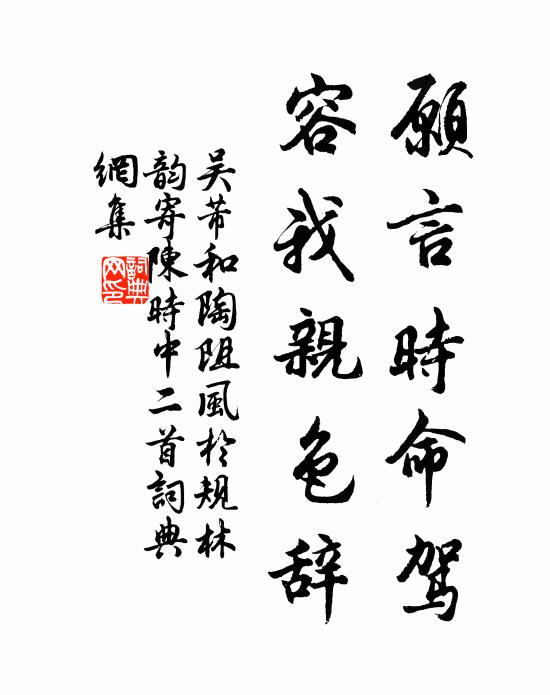 願言時命駕
容我親色辞
吴芾和陶阻風於規林
韵寄陳時中二首詞典
網集
詞典網印